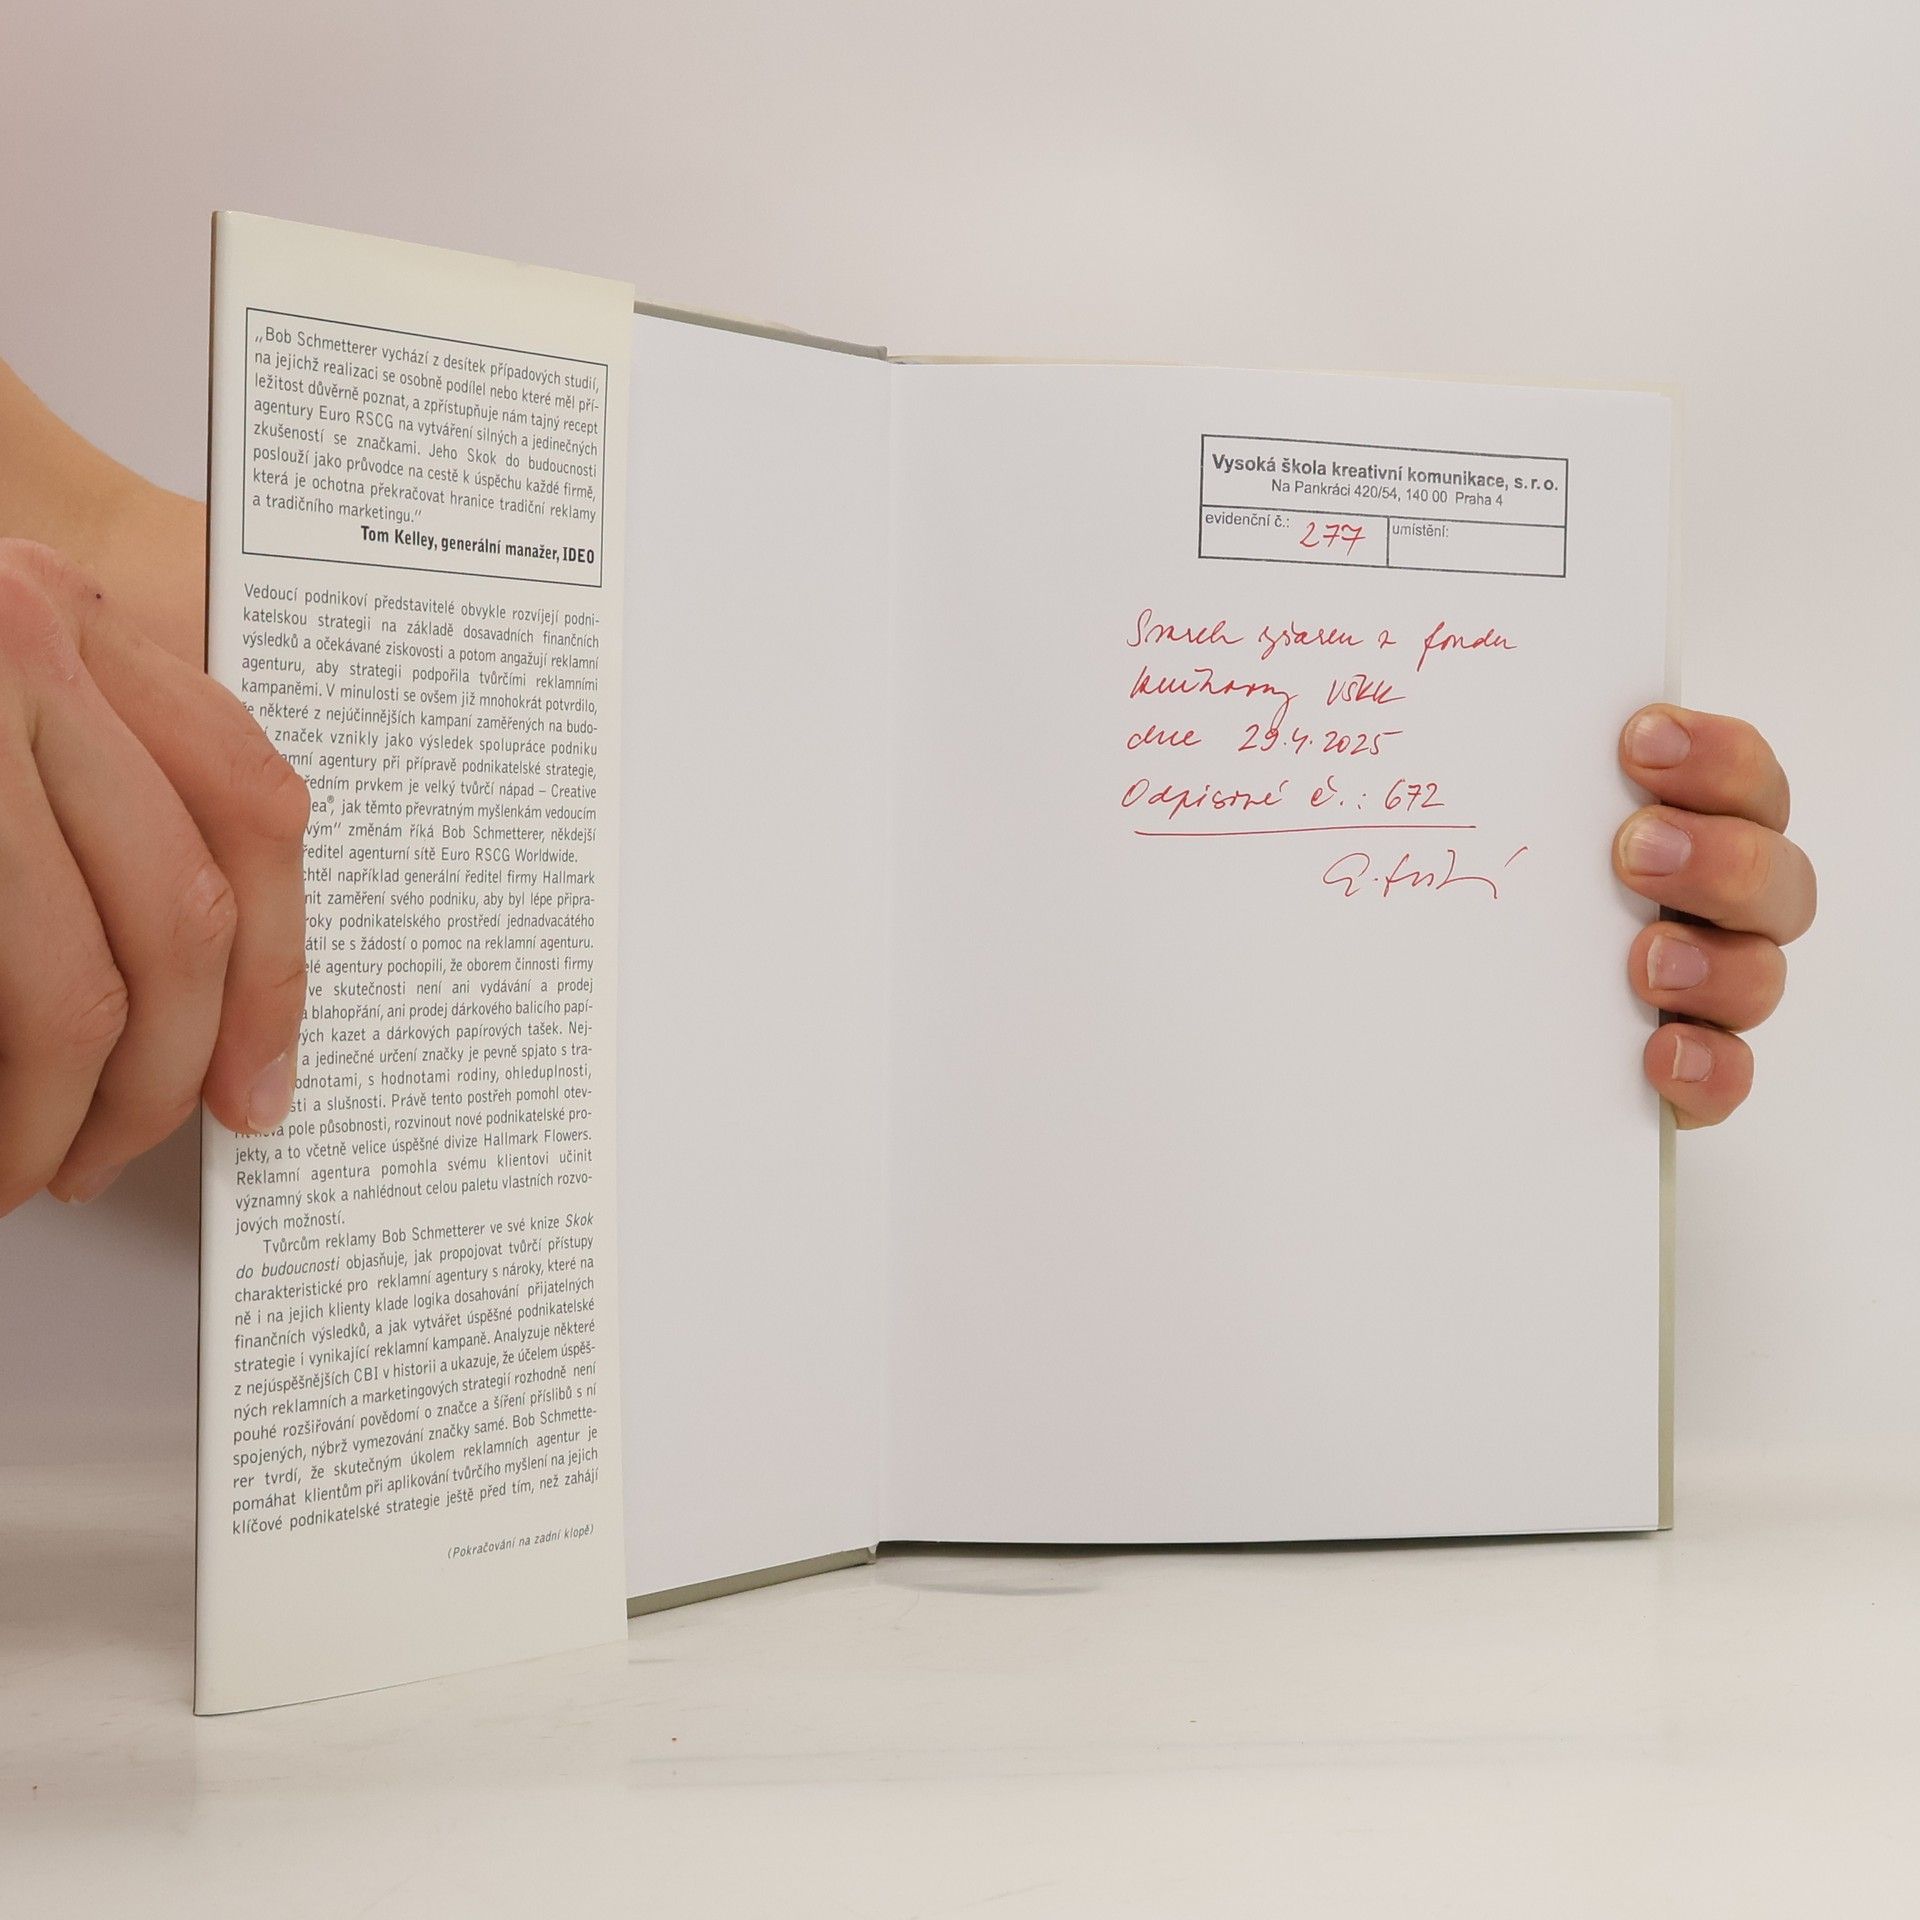 „Bob Schmetterer vychází z desítek případových studií,
na jejichž realizaci se osobně podílel nebo které měl pří-
ležitost důvěrně poznat, a zpřístupňuje nám tajný recept
agentury Euro RSCG na vytváření silných a jedinečných
zkušeností se značkami. Jeho Skok do budoucnosti
poslouží jako průvodce na cestě k úspěchu každé firmě,
která je ochotna překračovat hranice tradiční reklamy
a tradičního marketingu.“
Tom Kelley, generální manažer, IDEO
Vedoucí podnikoví představitelé obvykle rozvíjejí podni-
katelskou strategii na základě dosavadních finančních
výsledků a očekávané ziskovosti a potom angažují reklamní
agenturu, aby strategii podpořila tvůrčími reklamními
kampaněmi. V minulosti se ovšem již mnohokrát potvrdilo,
některé z nejúčinnějších kampaní zaměřených na budo-
značek vznikly jako výsledek spolupráce podniku
amní agentury při přípravě podnikatelské strategie,
ředním prvkem je velký tvůrčí nápad – Creative
ea®, jak těmto převratným myšlenkám vedoucím
vým“ změnám říká Bob Schmetterer, někdejší
ředitel agenturní sítě Euro RSCG Worldwide.
chtěl například generální ředitel firmy Hallmark
nit zaměření svého podniku, aby byl lépe připra-
roky podnikatelského prostředí jednadvacátého
átil se s žádostí o pomoc na reklamní agenturu.
elé agentury pochopili, že oborem činnosti firmy
ve skutečnosti není ani vydávání a prodej
a blahopřání, ani prodej dárkového balicího papí-
ých kazet a dárkových papírových tašek. Nej-
a jedinečné určení značky je pevně spjato s tra-
odnotami, s hodnotami rodiny, ohleduplnosti,
sti a slušnosti. Právě tento postřeh pomohl otev-
pole působnosti, rozvinout nové podnikatelské pro-
jekty, a to včetně velice úspěšné divize Hallmark Flowers.
Reklamní agentura pomohla svému klientovi učinit
významný skok a nahlédnout celou paletu vlastních rozvo-
jových možností.
Tvůrcům reklamy Bob Schmetterer ve své knize Skok
do budoucnosti objasňuje, jak propojovat tvůrčí přístupy
charakteristické pro reklamní agentury s nároky, které na
ně i na jejich klienty klade logika dosahování přijatelných
finančních výsledků, a jak vytvářet úspěšné podnikatelské
strategie i vynikající reklamní kampaně. Analyzuje některé
z nejúspěšnějších CBI v historii a ukazuje, že účelem úspěš-
ných reklamních a marketingových strategií rozhodně není
pouhé rozšiřování povědomí o značce a šíření příslibů s ní
spojených, nýbrž vymezování značky samé. Bob Schmette-
rer tvrdí, že skutečným úkolem reklamních agentur je
pomáhat klientům při aplikování tvůrčího myšlení na jejich
klíčové podnikatelské strategie ještě před tím, než zahájí
(Pokračování na zadní klopě)
Vysoká škola kreativní komunikace, s.r.o.
Na Pankráci 420/54, 140 00 Praha 4
evidenční č.: 277 umístění:
Svazek vyřazen z fondu
knihovny VŠKK
dne 29.4.2025
Odpisové č.: 672